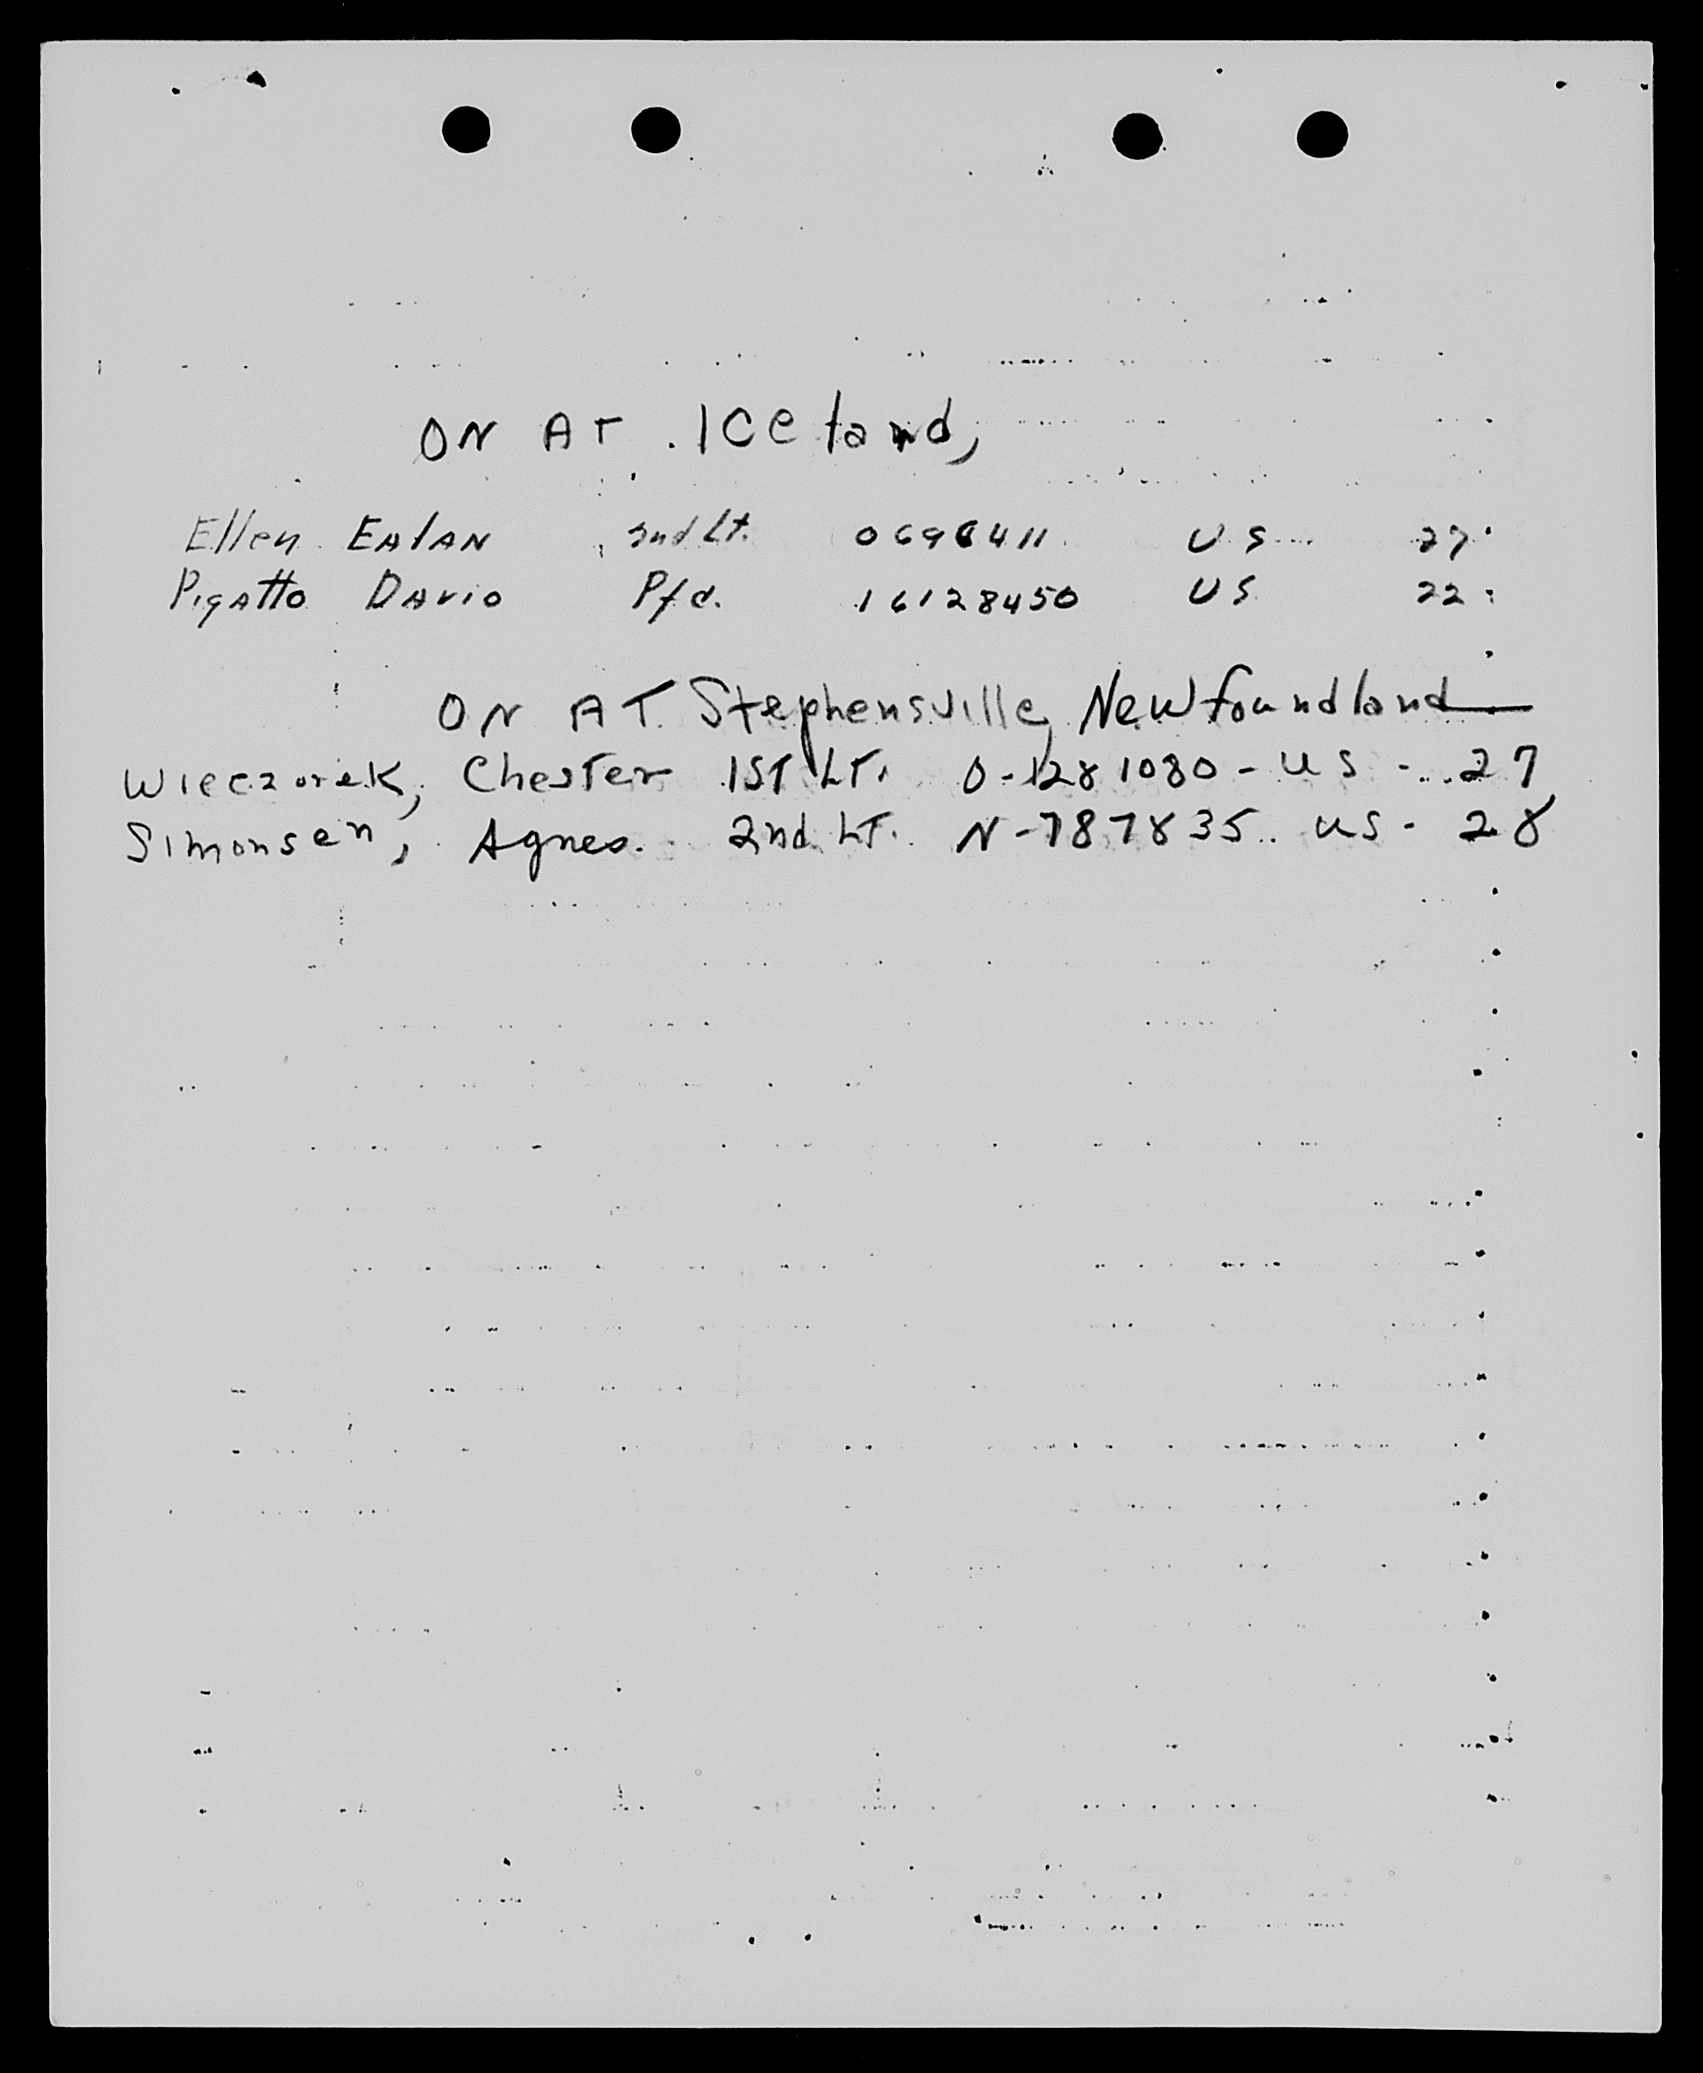 ON AT Iceland,
Ellen EALAN 2nd Lt. 0696411 US 27
Pigatto DAVID Pfc. 16128450 US 22
ON AT Stephensville, Newfoundland
Wieczorek, Chester 1ST LT. O-1281080 - US - 27
Simonsen, Agnes. 2nd LT. N-787835 US - 28